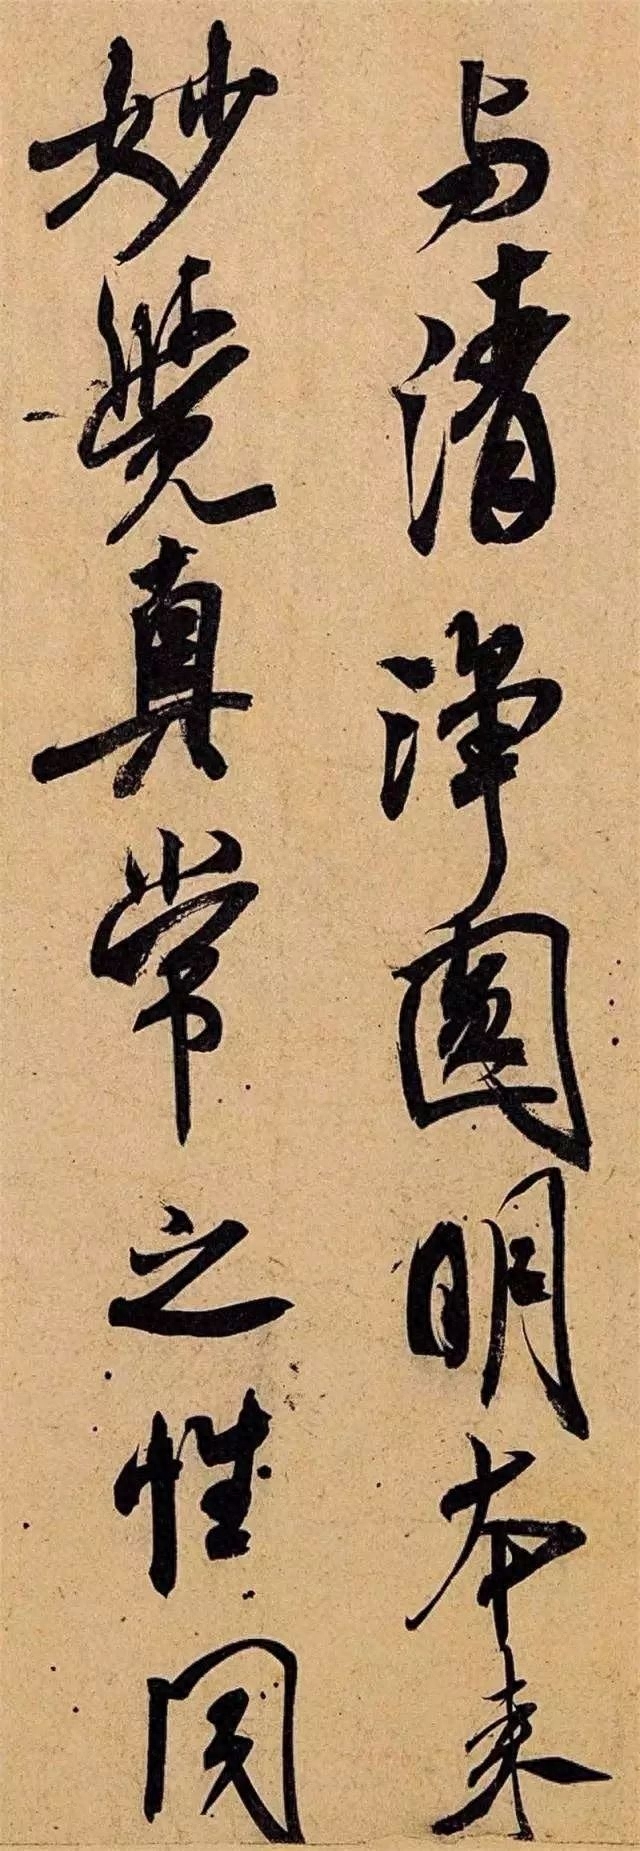 与清净圆明本来
妙觉真常之性同